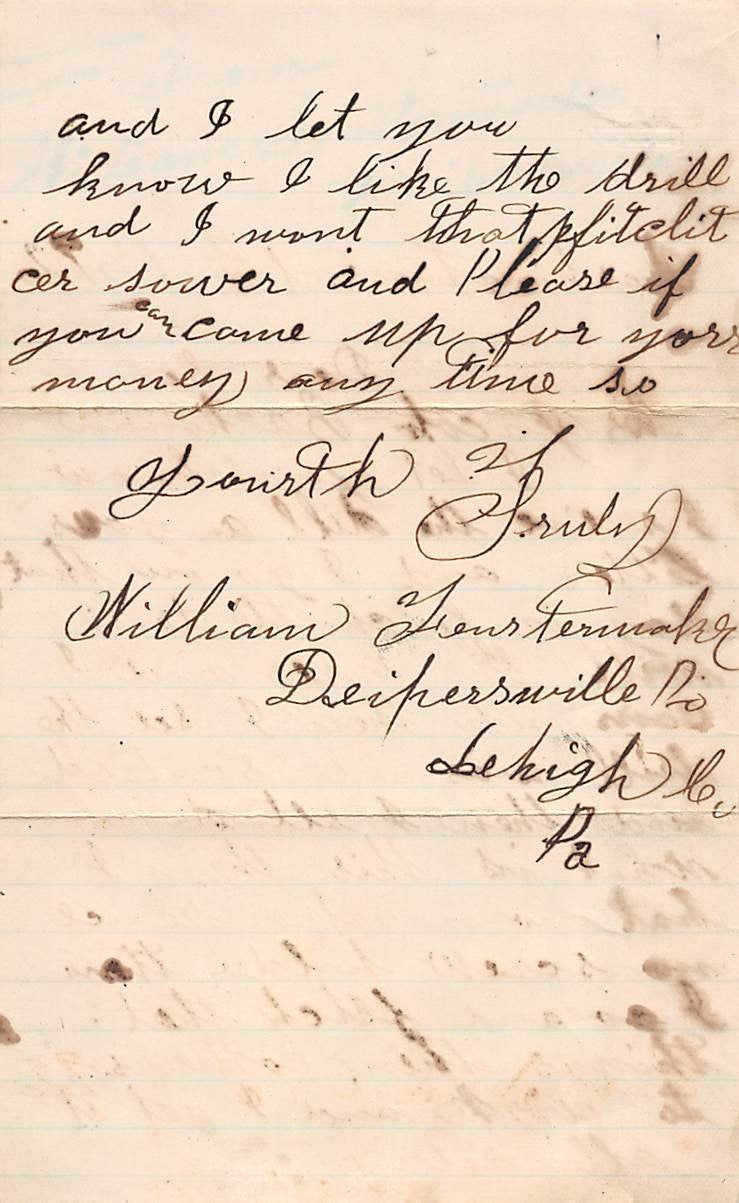 and I let you
know I like the drill
and I wont that pfitelit
cer sower and Please if
you can came up for yorr
money any time so
Yourth
Truly
William Fenstermaker
Deipersville Po
Lehigh Co
Pa